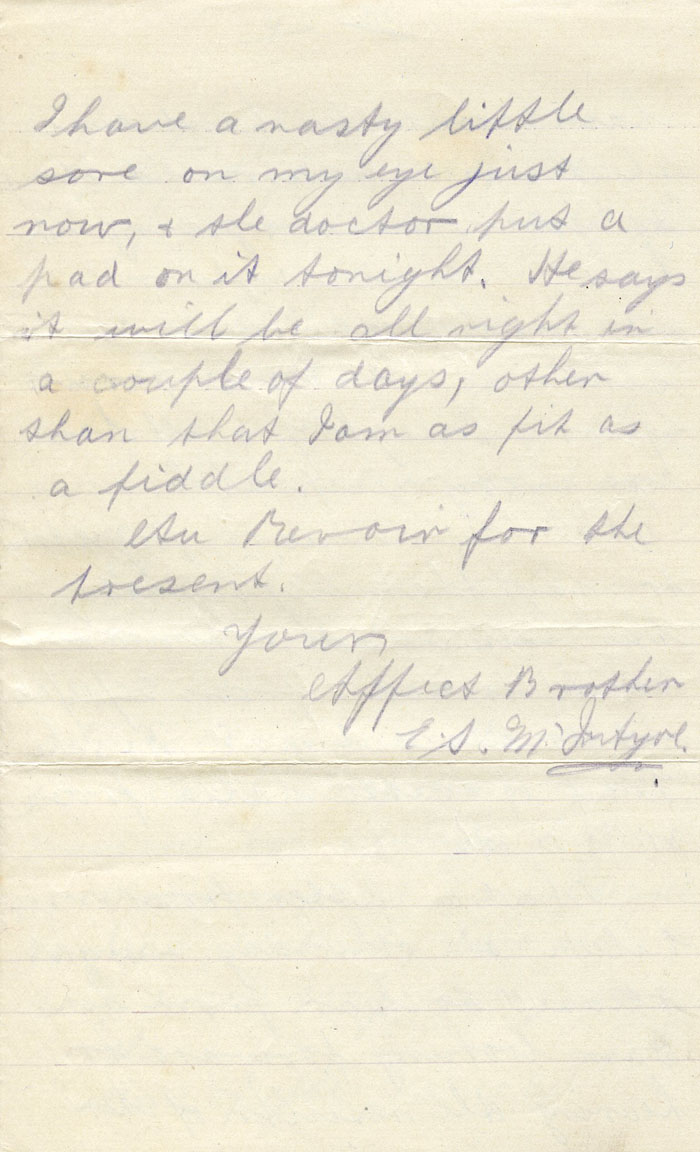 I have a nasty little
sore on my eye just
now, & the doctor put a
pad on it tonight. He says
it will be all right in
a couple of days, other
than that I am as fit as
a fiddle.
Au Revoir for the
present.
Your
Affect Brother
E.S. McIntyre.